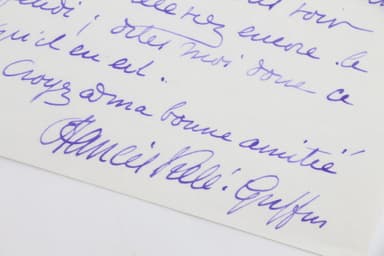 soir
encore le
dites moi donc ce
qu'il en est.
Croyez à ma bonne amitié
Francis Vielé-Griffin